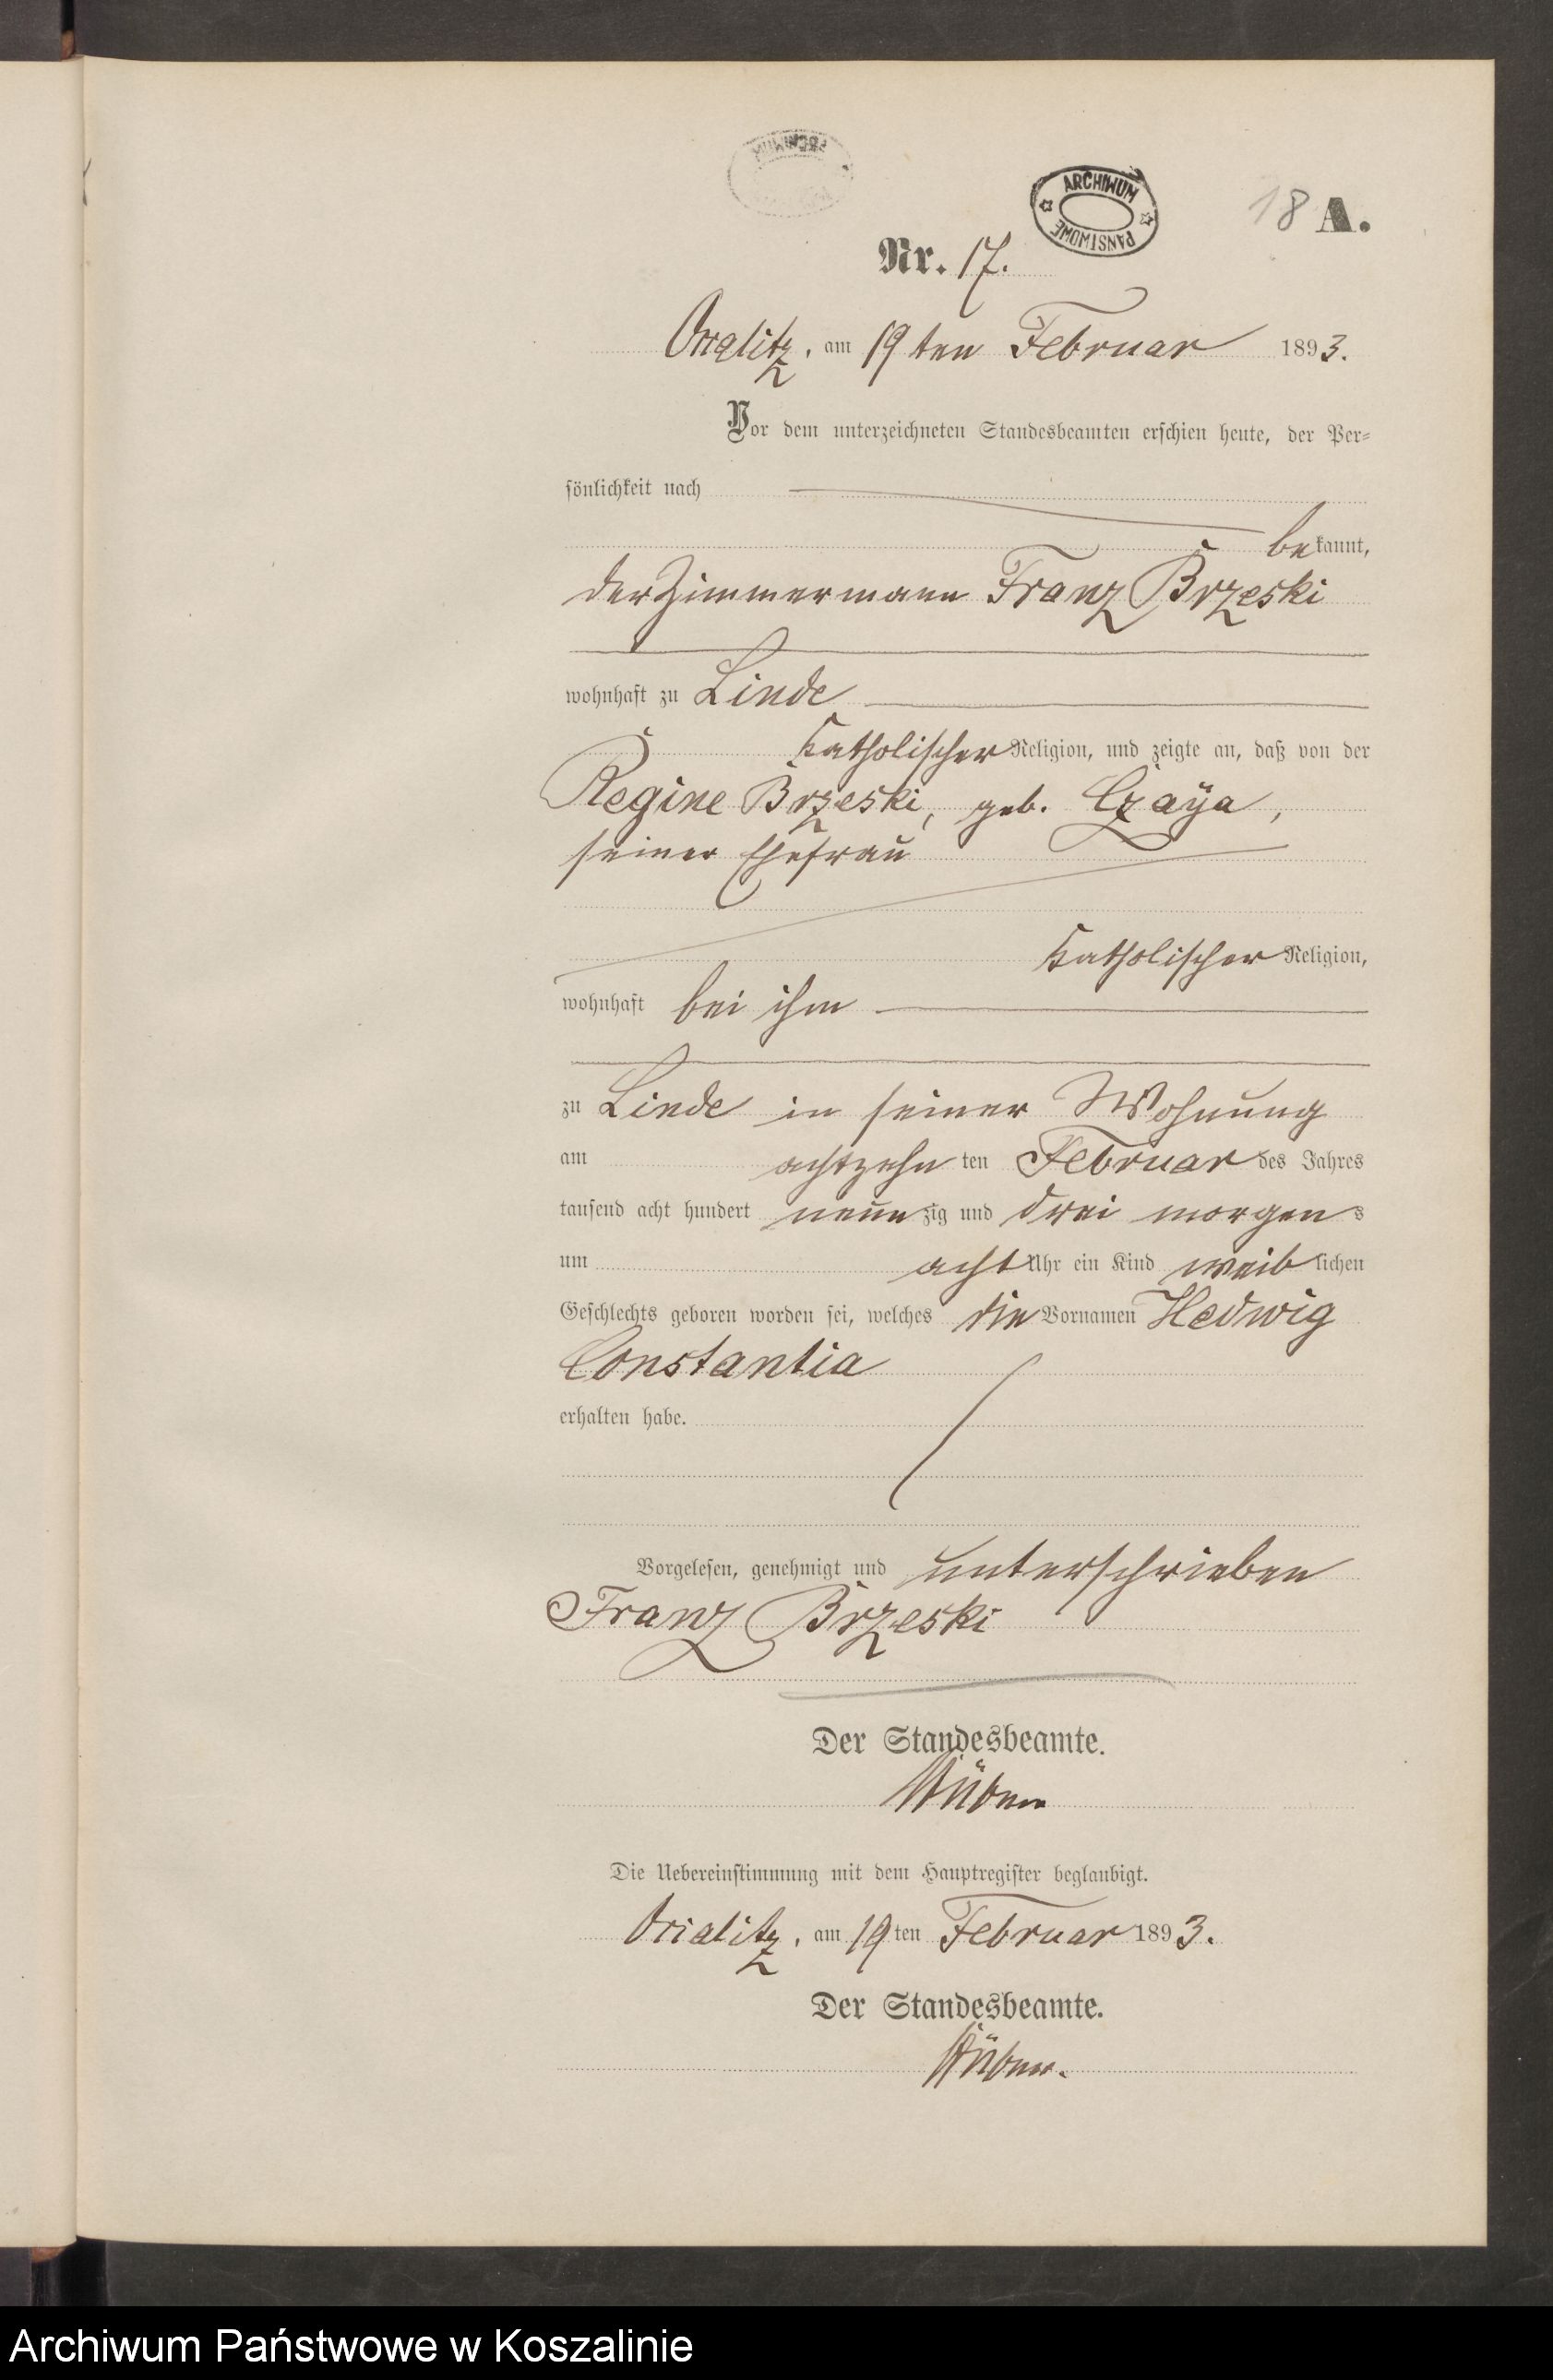 ARCHIWUM PAŃSTWOWE
18 A.
Nr. 17.
am 19 ten Februar 1893.
Vor dem unterzeichneten Standesbeamten erschien heute, der Per-
sönlichkeit nach
bekannt,
der Zimmermann Franz Brzeski
wohnhaft zu Linde
katholischer Religion, und zeigte an, daß von der
Regine Brzeski, geb. Czaÿa,
seiner Ehefrau
katholischer Religion,
wohnhaft bei ihm
zu Linde in seiner Wohnung
am achtzehn ten Februar des Jahres
tausend acht hundert neunzig und drei morgens
um acht Uhr ein Kind weiblichen
Geschlechts geboren worden sei, welches die Vornamen Hedwig
Constantia
erhalten habe.
Vorgelesen, genehmigt und unterschrieben
Franz Brzeski
Der Standesbeamte.
Die Uebereinstimmung mit dem Hauptregister beglaubigt.
am 19 ten Februar 1893.
Der Standesbeamte.
Archiwum Państwowe w Koszalinie